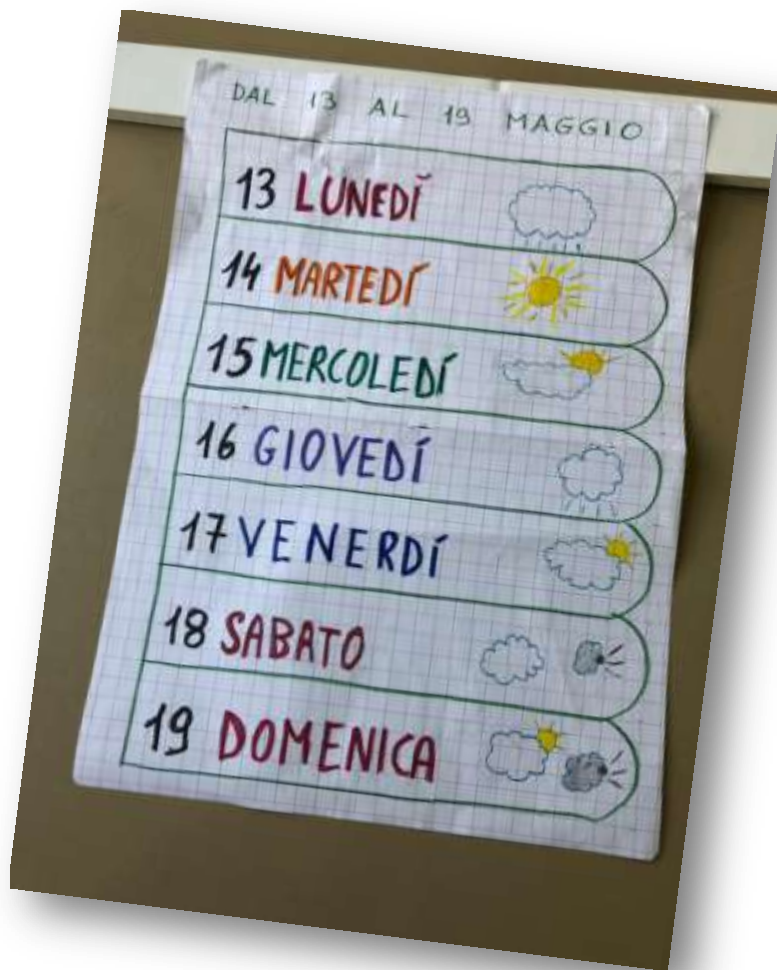 DAL 13 AL 19 MAGGIO
13 LUNEDÍ
14 MARTEDÍ
15 MERCOLEDÍ
16 GIOVEDÍ
17 VENERDÍ
18 SABATO
19 DOMENICA